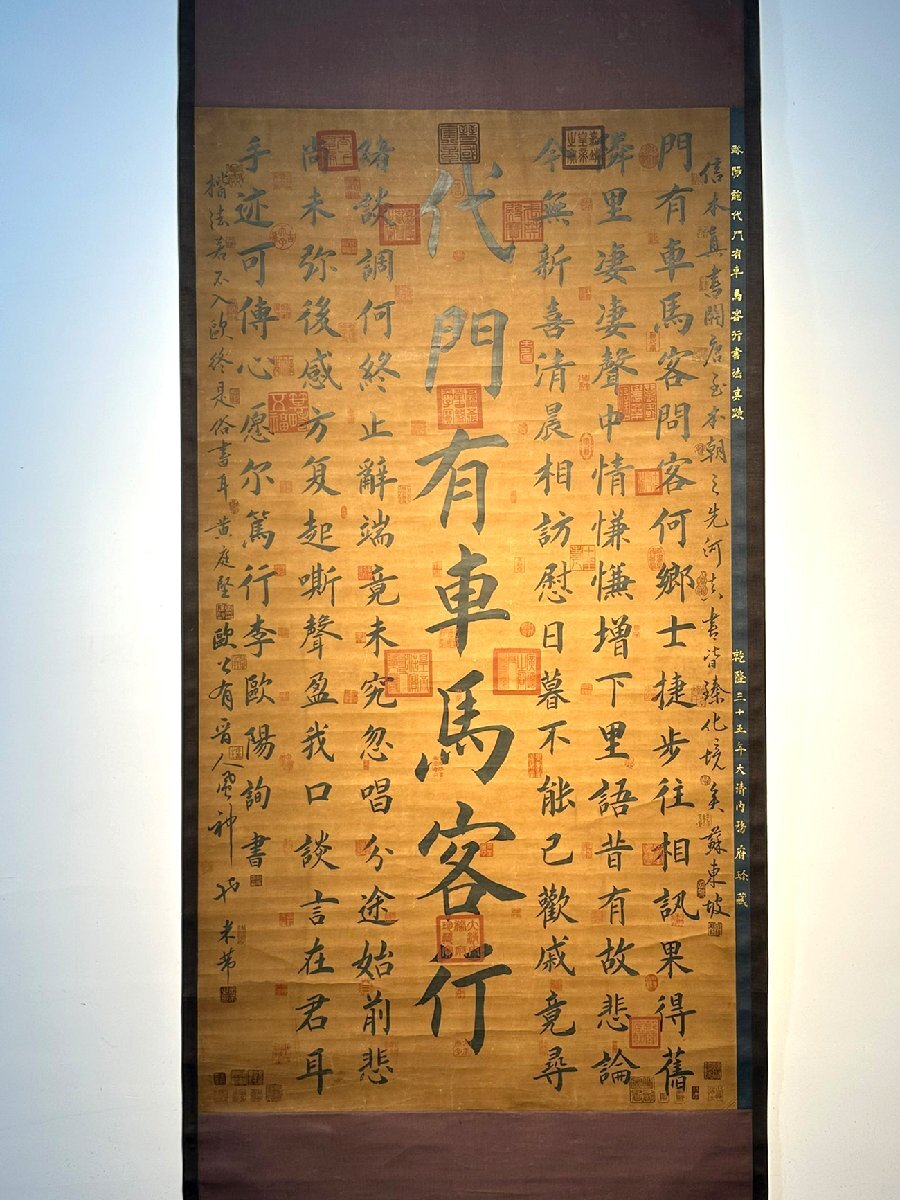 歐陽詢代門有車馬客行書法真跡
乾隆三十五年大清內務府珍藏
信本真書開唐至本朝之先河真書皆臻化境矣蘇東坡
門有車馬客問客何鄉士捷步往相訊果得舊
隣里凄凄聲中情慊慊增下里語昔有故悲論
今無新喜清晨相訪慰日暮不能已歡戚竟尋
代門有車馬客行
緒談調何終止辭端竟未究忽唱分途始前悲
尚未弥後感方复起嘶聲盈我口談言在君耳
手迹可傳心愿尔篤行李歐陽詢書
楷法若不入歐終是俗書耳黄庭堅
歐公有晋人風神也米芾